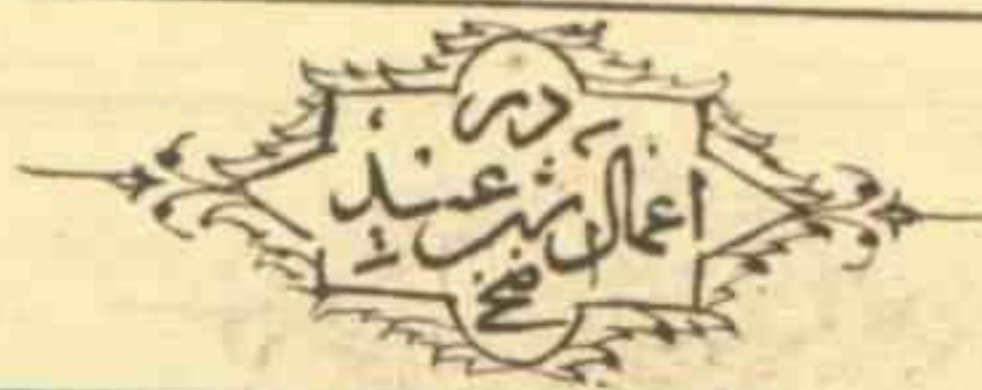 در
اعمال شب عید
اضحی